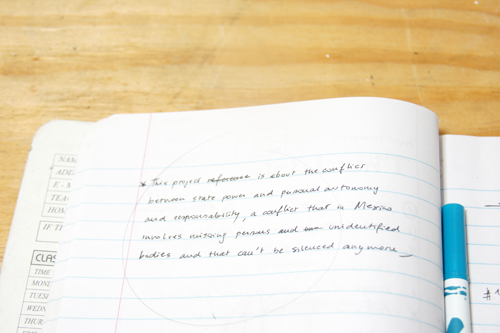 * This project reference is about the conflict
between state power and personal autonomy
and responsability, a conflict that in Mexico
involves missing persons and unidentified
bodies and that can't be silenced anymore
NAM
ADD
E-M
TEA
HOM
IF TH
CLAS
TIME
MOND
TUESD
WEDN
THUR
FRID